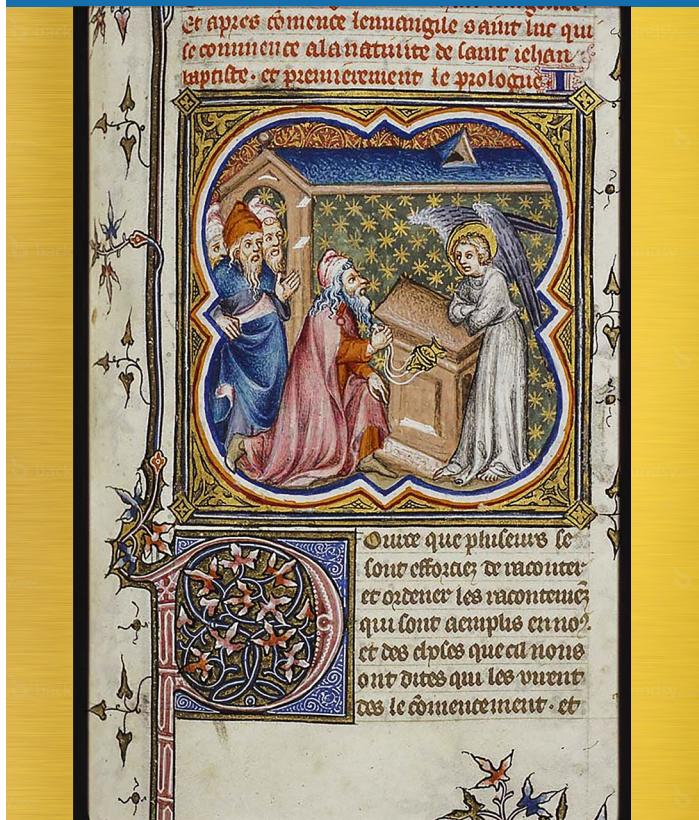 Et apres cōmence leuuangile saint luc qui
se commence ala natiuite de saint iehan
baptiste · et premierement le prologue I
Pource que pluseurs se
sont efforciez de raconter
et ordener les racontemēs
qui sont aemplis en no9
et des choses que cil nous
ont dites qui les virent
des le cōmencement · et